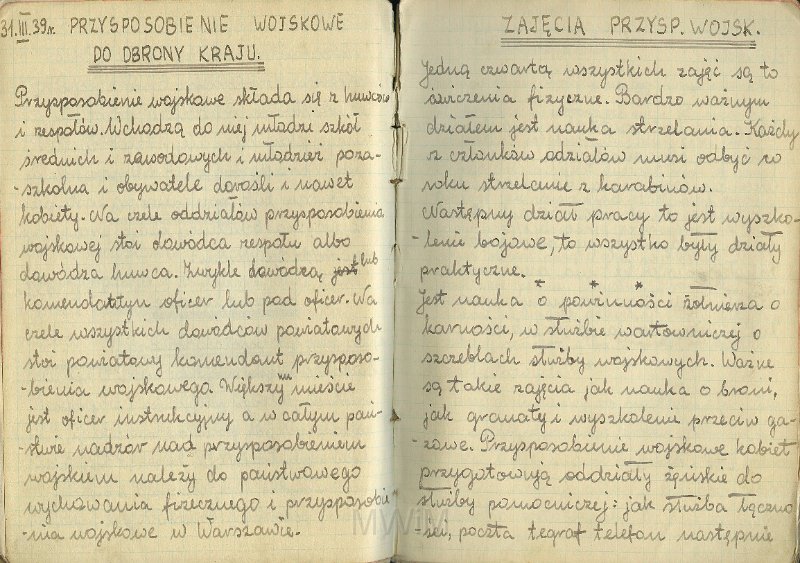 31.III.39r. PRZYSPOSOBIENIE WOJSKOWE
DO OBRONY KRAJU.
Przysposobienie wojskowe składa się z hufców
i zespołów. Wchodzą do niej młodzi szkół
średnich i zawodowych i młodzież poza-
-szkolna i obywatele dorośli i nawet
kobiety. Na czele oddziałów przysposobienia
wojskowej stoi dowódca zespołu albo
dowódza hufca. Zwykle dowódzą jest lub
komendattym oficer lub pod oficer. Na
czele wszystkich dowódców powiatowych
stoi powiatowy komendant przysposo-
-bienia wojskowego Większym mieście
jest oficer instrukcyjny a w całym pań-
stwie nadzór nad przysposobieniem
wojskiem należy do państwowego
wychowania fizecznego i przysposobie
-nia wojskowe w Warszawie.
ZAJĘCIA PRZYSP. WOJSK.
Jedną czwartą wszystkich zajęć są to
ćwiczenia fizyczne. Bardzo ważnym
działem jest nauka strzelania. Każdy
z członków odziałów musi odbyć w
roku strzelanie z karabinów.
Następny dział pracy to jest wyszko-
-lenie bojowe, to wszystko były działy
praktyczne.
Jest nauka o powinności żołnierza o
karności, w służbie wartowniczej o
szczeblach służby wojskowych. Ważne
są takie zajęcia jak nauka o broni,
jak granaty i wyszkolenie przeciw ga-
-zowe. Przysposobienie wojskowe kobiet
przygotowują oddziały żeńskie do
służby pomocniczej: jak służba łączno
ści, poczta tegraf telefon następnie
MWiM